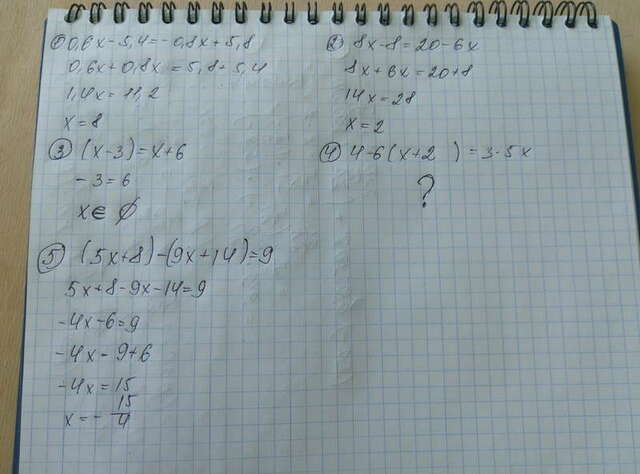 ① 0,6x-5,4=-0,8x+5,8
0,6x+0,8x=5,8+5,4
1,4x=11,2
x=8
② 8x-8=20-6x
8x+6x=20+8
14x=28
x=2
③ (x-3)=x+6
-3=6
x∈∅
④ 4-6(x+2 )=3-5x
?
⑤ (5x+8)-(9x+14)=9
5x+8-9x-14=9
-4x-6=9
-4x-9+6
-4x=15
x=-15/4